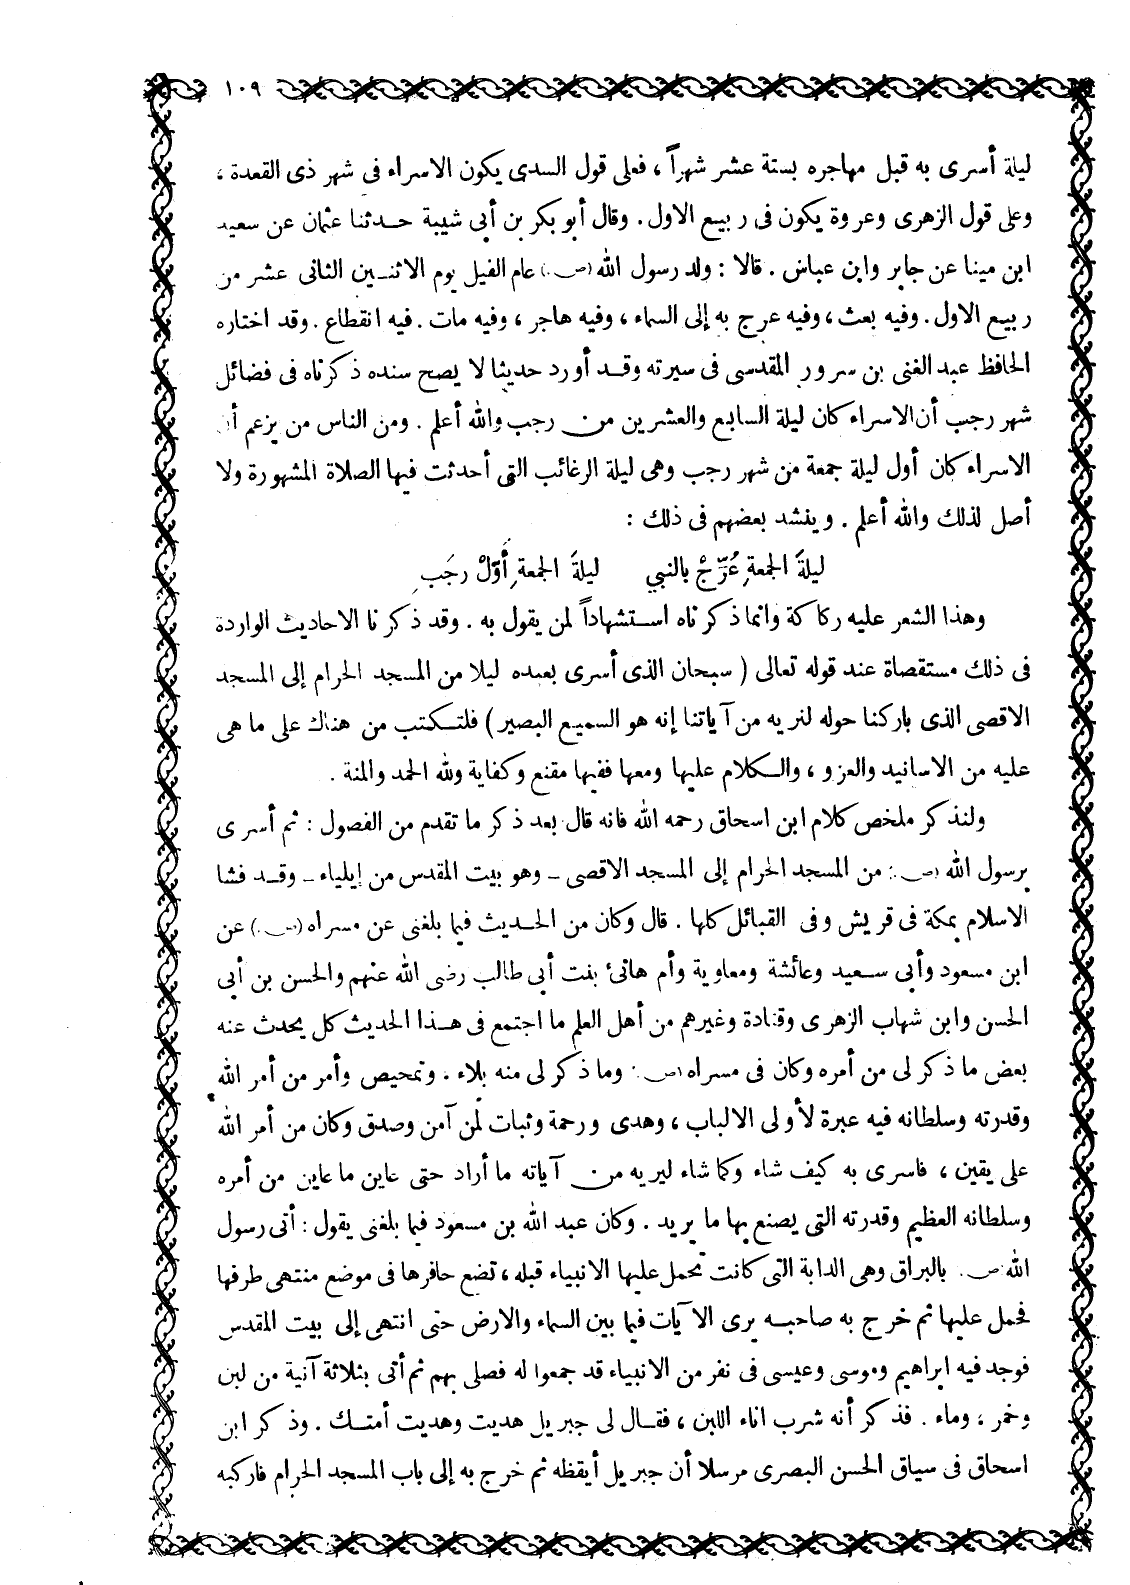 ١٠٩
ليلة أسرى به قبل مهاجره بستة عشر شهراً ، فعلى قول السدى يكون الاسراء فى شهر ذى القعدة ،
وعلى قول الزهرى وعروة يكون فى ربيع الاول . وقال أبو بكر بن أبى شيبة حدثنا عثمان عن سعيد
ابن مينا عن جابر وابن عباس . قالا : ولد رسول الله (ص) عام الفيل يوم الاثنين الثانى عشر من
ربيع الاول . وفيه بعث ، وفيه عرج به إلى السماء ، وفيه هاجر ، وفيه مات . فيه انقطاع . وقد اختاره
الحافظ عبد الغنى بن سرور المقدسى فى سيرته وقد أورد حديثا لا يصح سنده ذكرناه فى فضائل
شهر رجب أن الاسراء كان ليلة السابع والعشرين من رجب والله أعلم . ومن الناس من يزعم أن
الاسراء كان أول ليلة جمعة من شهر رجب وهى ليلة الرغائب التى أحدثت فيها الصلاة المشهورة ولا
أصل لذلك والله أعلم . وينشد بعضهم فى ذلك :
ليلةَ الجمعةِ عُرِّجْ بالنبي ليلةَ الجمعةِ أوّلْ رجَبِ
وهذا الشعر عليه ركاكة وانما ذكرناه استشهاداً لمن يقول به . وقد ذكرنا الاحاديث الواردة
فى ذلك مستقصاة عند قوله تعالى ( سبحان الذى أسرى بعبده ليلا من المسجد الحرام إلى المسجد
الاقصى الذى باركنا حوله لنريه من آياتنا إنه هو السميع البصير ) فلتكتب من هناك على ما هى
عليه من الاسانيد والعزو ، والكلام عليها ومعها ففيها مقنع وكفاية ولله الحمد والمنة .
ولنذكر ملخص كلام ابن اسحاق رحمه الله فانه قال بعد ذكر ما تقدم من الفصول : ثم أسرى
برسول الله (ص) من المسجد الحرام إلى المسجد الاقصى - وهو بيت المقدس من إيلياء - وقد فشا
الاسلام بمكة فى قريش وفى القبائل كلها . قال وكان من الحديث فيما بلغنى عن مسراه (ص) عن
ابن مسعود وأبى سعيد وعائشة ومعاوية وأم هانئ بنت أبى طالب رضى الله عنهم والحسن بن أبى
الحسن وابن شهاب الزهرى وقتادة وغيرهم من أهل العلم ما اجتمع فى هذا الحديث كل يحدث عنه
بعض ما ذكر لى من أمره وكان فى مسراه (ص) وما ذكر لى منه بلاء . وتمحيص وأمر من أمر الله
وقدرته وسلطانه فيه عبرة لأولى الالباب ، وهدى ورحمة وثبات لمن آمن وصدق وكان من أمر الله
على يقين ، فاسرى به كيف شاء وكما شاء ليريه من آياته ما أراد حتى عاين ما عاين من أمره
وسلطانه العظيم وقدرته التى يصنع بها ما يريد . وكان عبد الله بن مسعود فيما بلغنى يقول : أتى رسول
الله (ص) بالبراق وهى الدابة التى كانت تحمل عليها الانبياء قبله ، تضع حافرها فى موضع منتهى طرفها
فحمل عليها ثم خرج به صاحبه يرى الآيات فيما بين السماء والارض حتى انتهى إلى بيت المقدس
فوجد فيه ابراهيم وموسى وعيسى فى نفر من الانبياء قد جمعوا له فصلى بهم ثم أتى بثلاثة آنية من لبن
وخمر ، وماء . فذكر أنه شرب اناء اللبن ، فقال لى جبريل هديت وهديت أمتك . وذكر ابن
اسحاق فى سياق الحسن البصرى مرسلا أن جبريل أيقظه ثم خرج به إلى باب المسجد الحرام فاركبه